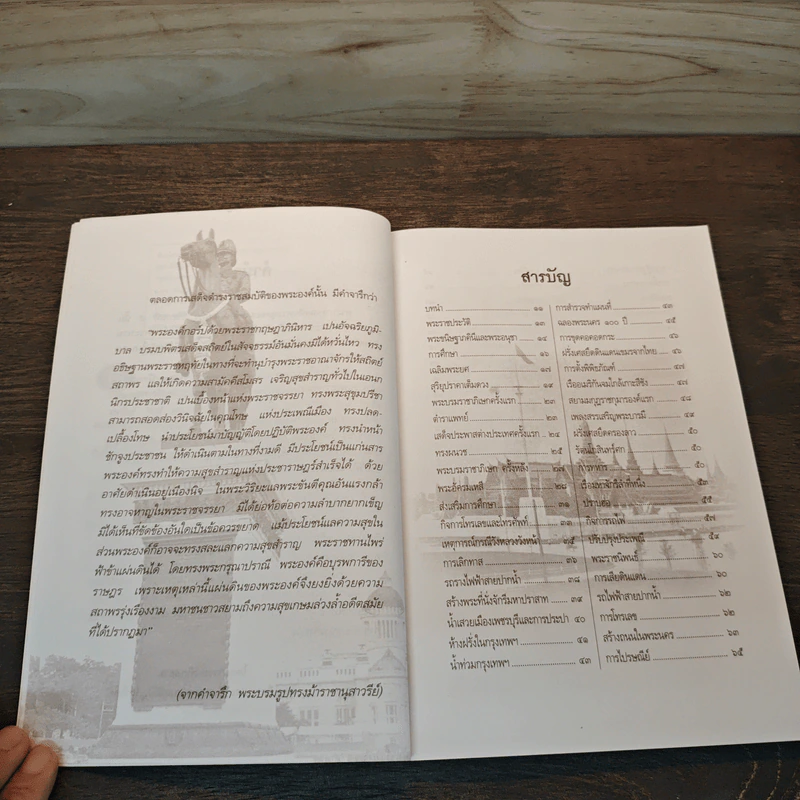 ตลอดการเสด็จดำรงราชสมบัติของพระองค์นั้น มีคำจารึกว่า
"พระองค์กอรปด้วยพระราชกฤษฎาภินิหาร เปนอัจฉริยภูมิ-
บาล บรมบพิตรเสด็จสถิตย์ในสัจธรรม์อันมั่นคงมิได้หวั่นไหว ทรง
อธิษฐานพระราชหฤทัยในทางที่จะทำนุบำรุงพระราชอาณาจักรให้สถิตย์
สถาพร แลให้เกิดความสามัคคีสโมสร เจริญสุขสำราญทั่วไปในเอนก
นิกรประชาชาติ เปนเบื้องหน้าแห่งพระราชจรรยา ทรงพระสุขุมปรีชา
สามารถสอดส่องวินิจฉัยในคุณโทษ แห่งประเพณีเมือง ทรงปลด-
เปลื้องโทษ นำประโยชน์มาบัญญัติโดยปฏิบัติพระองค์ ทรงนำหน้า
ชักจูงประชาชน ให้ดำเนินตามในทางที่งามดี มีประโยชน์เป็นแก่นสาร
พระองค์ทรงทำให้ความสุขสำราญแห่งประชาราษฎร์สำเร็จได้ ด้วย
อาศัยดำเนินอยู่เนืองนิจ ในพระวิริยะแลพระขันตีคุณอันแรงกล้า
ทรงอาจหาญในพระราชจรรยา มิได้ย่อท้อต่อความลำบากยากเข็ญ
มิได้เห็นที่ขัดข้องอันใดเป็นข้อควรขยาด แม้ประโยชน์แลความสุขใน
ส่วนพระองค์ก็อาจจะทรงสละแลกความสุขสำราญ พระราชทานไพร่
ฟ้าข้าแผ่นดินได้ โดยทรงพระกรุณาปราณี พระองค์คือบุรพการีของ
ราษฎร เพราะเหตุเหล่านี้แผ่นดินของพระองค์จึงยงยิ่งด้วยความ
สถาพรรุ่งเรืองงาม มหาชนชาวสยามถึงความสุขเกษมล่วงล้ำอดีตสมัย
ที่ได้ปรากฏมา"
(จากคำจารึก พระบรมรูปทรงม้าราชานุสาวรีย์)
สารบัญ
บทนำ ๑๑
พระราชประวัติ ๑๓
พระชนิษฐภคินีและพระอนุชา ๑๔
การศึกษา ๑๖
เฉลิมพระยศ ๑๗
สุริยุปราคาเต็มดวง ๑๙
พระบรมราชาภิเษกครั้งแรก ๒๓
ตำราแพทย์ ๒๓
เสด็จประพาสต่างประเทศครั้งแรก ๒๔
ทรงผนวช ๒๕
พระบรมราชาภิเษก ครั้งหลัง ๒๗
พระอัครมเหสี ๒๘
ส่งเสริมการศึกษา ๓๑
กิจการโทรเลขและโทรศัพท์ ๓๑
เหตุการณ์กรณีวังหลวงวังหน้า ๓๕
การเลิกทาส ๓๖
รถรางไฟฟ้าสายปากน้ำ ๓๘
สร้างพระที่นั่งจักรีมหาปราสาท ๓๙
น้ำเสวยเมืองเพชรบุรีและการประปา ๔๐
ห้างฝรั่งในกรุงเทพฯ ๔๑
น้ำท่วมกรุงเทพฯ ๔๓
การสำรวจทำแผนที่ ๔๓
ฉลองพระนคร ๑๐๐ ปี ๔๕
การขุดคอคอดกระ ๔๖
ฝรั่งเศสยึดดินแดนเขมรจากไทย ๔๖
การตั้งพิพิธภัณฑ์ ๔๗
เรืออเมริกันจมใกล้เกาะสีชัง ๔๗
สยามมกุฎราชกุมารองค์แรก ๔๘
เพลงสรรเสริญพระบารมี ๔๙
ฝรั่งเศสยึดครองลาว ๔๙
รัตนโกสินทร์ศก ๕๐
การทหาร ๕๐
เรือมหาจักรีลำที่หนึ่ง ๕๐
ปราบฮ่อ ๕๕
กิจการรถไฟ ๕๗
ปรับปรุงประเพณี ๕๙
พระราชนิพนธ์ ๖๐
การเสียดินแดน ๖๐
รถไฟฟ้าสายปากน้ำ ๖๒
การโทรเลข ๖๒
สร้างถนนในพระนคร ๖๓
การไปรษณีย์ ๖๕